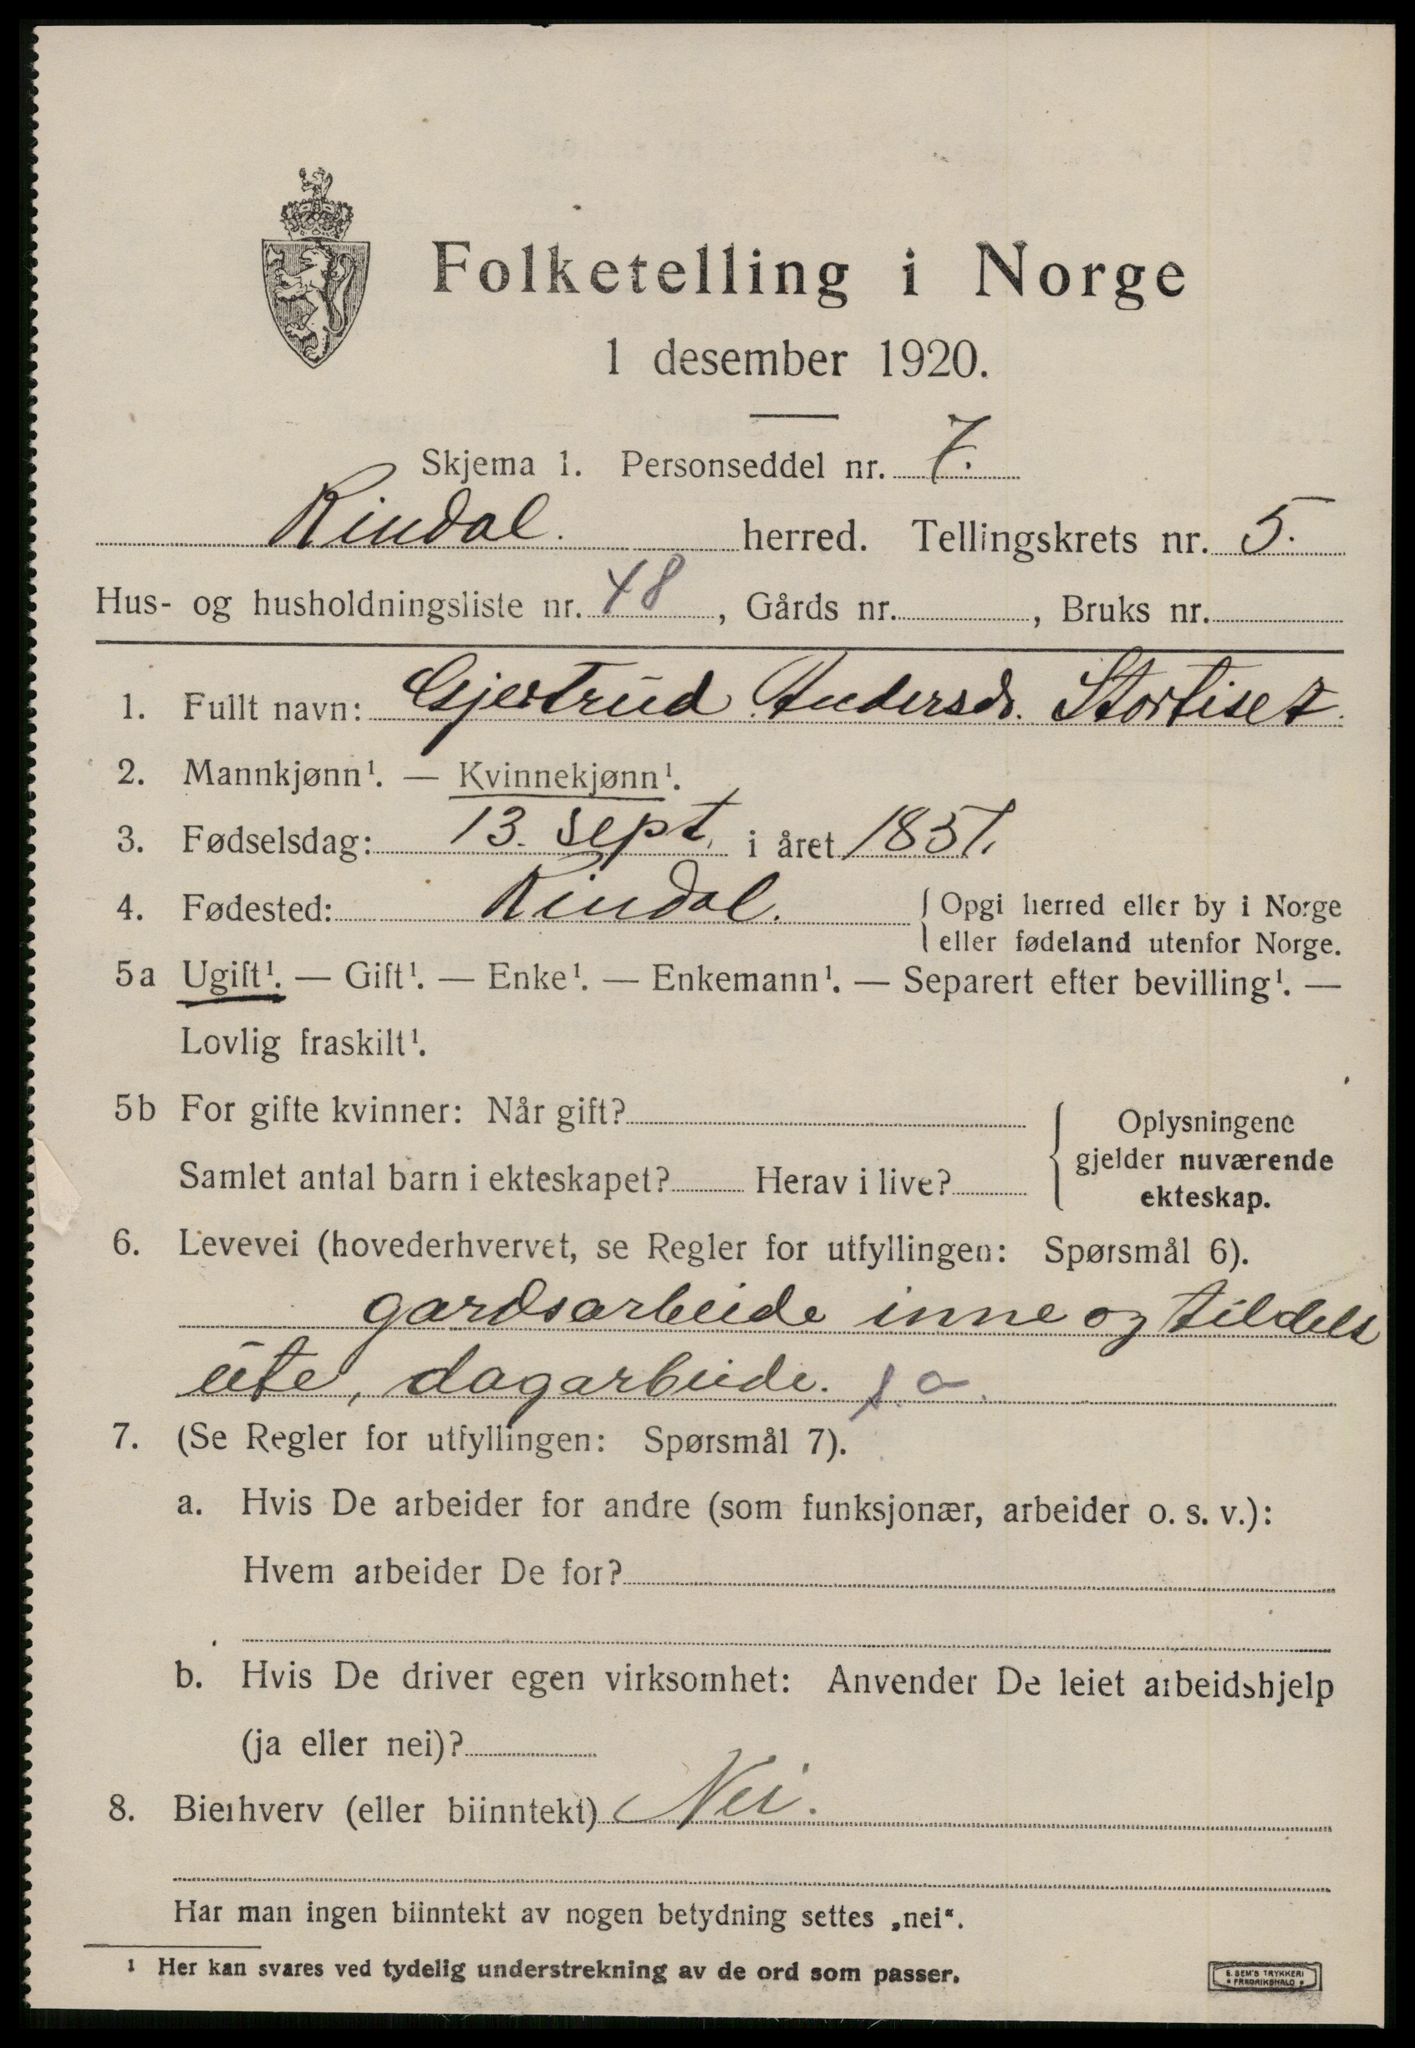 Folketelling i Norge
1 desember 1920.
Skjema 1. Personseddel nr. 7.
Rindal. herred. Tellingskrets nr. 5.
Hus- og husholdningsliste nr. 48, Gårds nr. , Bruks nr.
1. Fullt navn: Gjertrud Andersdr. Stortiset.
2. Mannkjønn¹. — Kvinnekjønn¹.
3. Fødselsdag: 13. sept. i året 1857.
4. Fødested: Rindal. { Opgi herred eller by i Norge
eller fødeland utenfor Norge.
5a Ugift¹. — Gift¹. — Enke¹. — Enkemann¹. — Separert efter bevilling¹. —
Lovlig fraskilt¹.
5b For gifte kvinner: Når gift?
Samlet antal barn i ekteskapet? Herav i live?
Oplysningene
gjelder nuværende
ekteskap.
6. Levevei (hovederhvervet, se Regler for utfyllingen: Spørsmål 6).
gardsarbeide inne og tildels
ute, dagarbeide. f. a.
7. (Se Regler for utfyllingen: Spørsmål 7).
a. Hvis De arbeider for andre (som funksjonær, arbeider o. s. v.):
Hvem arbeider De for?
b. Hvis De driver egen virksomhet: Anvender De leiet arbeidshjelp
(ja eller nei)?
8. Bierhverv (eller biinntekt) Nei.
Har man ingen biinntekt av nogen betydning settes „nei“.
¹ Her kan svares ved tydelig understrekning av de ord som passer.
E. SEM'S TRYKKERI
FREDRIKSHALD